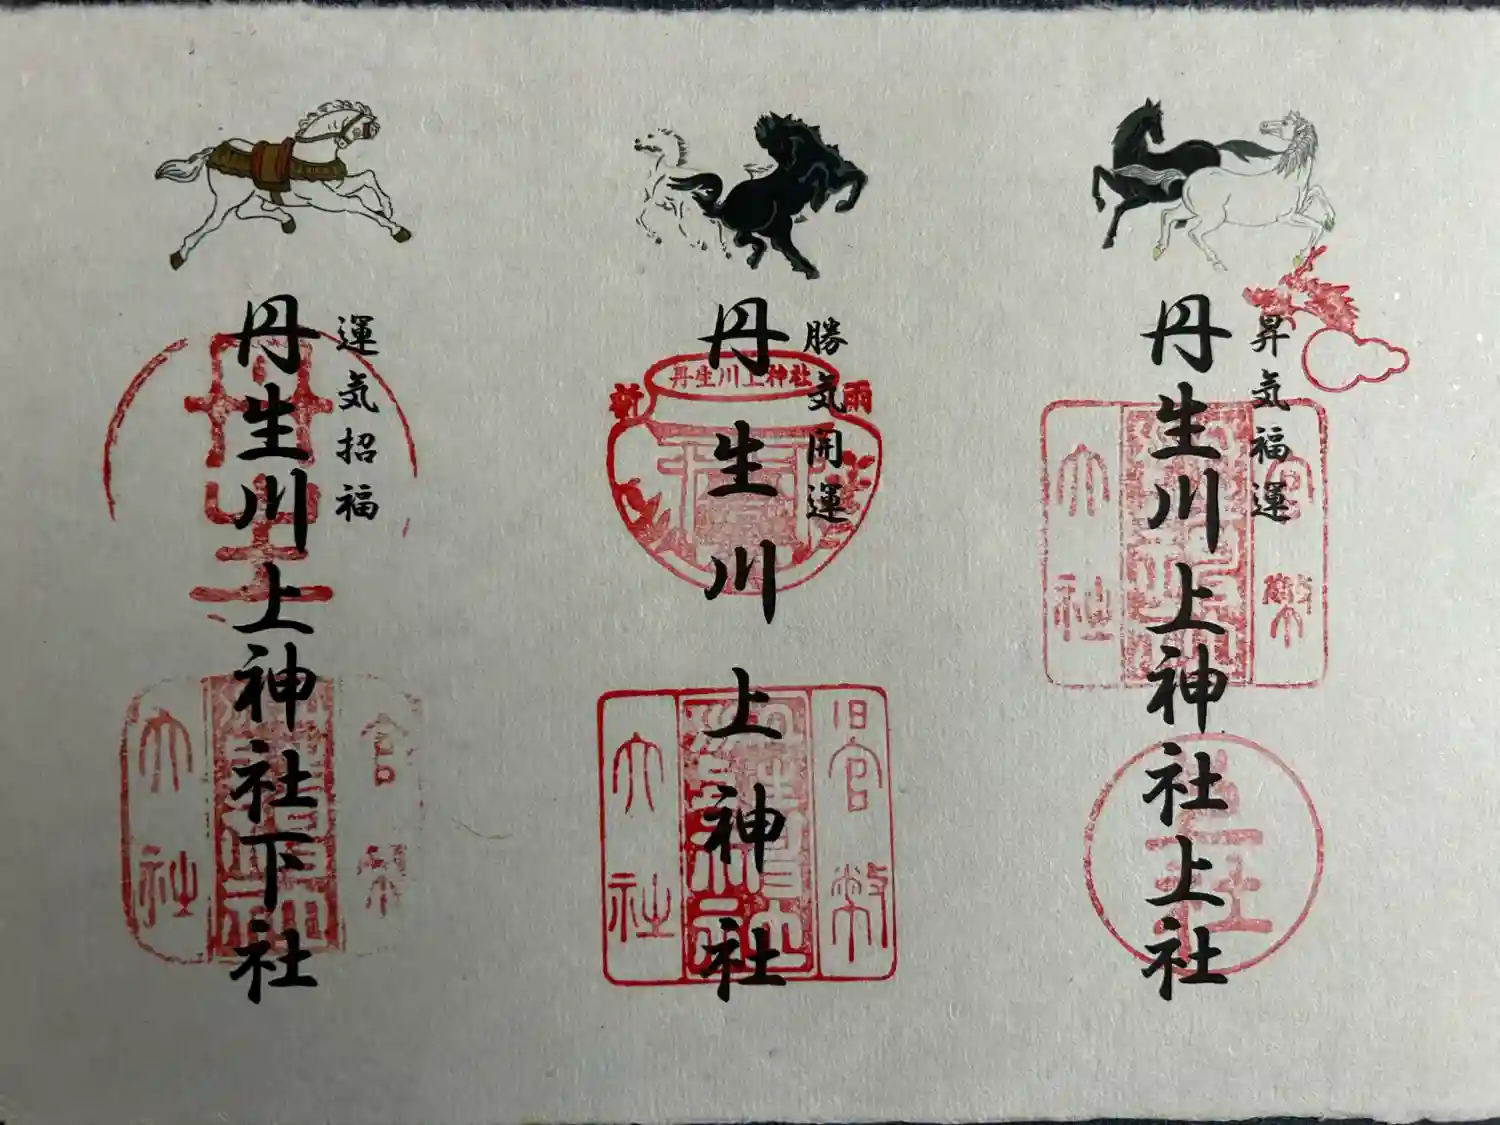 昇気福運
丹生川上神社上社
官幣
大社
上社
勝気開運
丹生川上神社
丹生川上神社
新
雨
旧官幣
大社
運気招福
丹生川上神社下社
官幣
大社